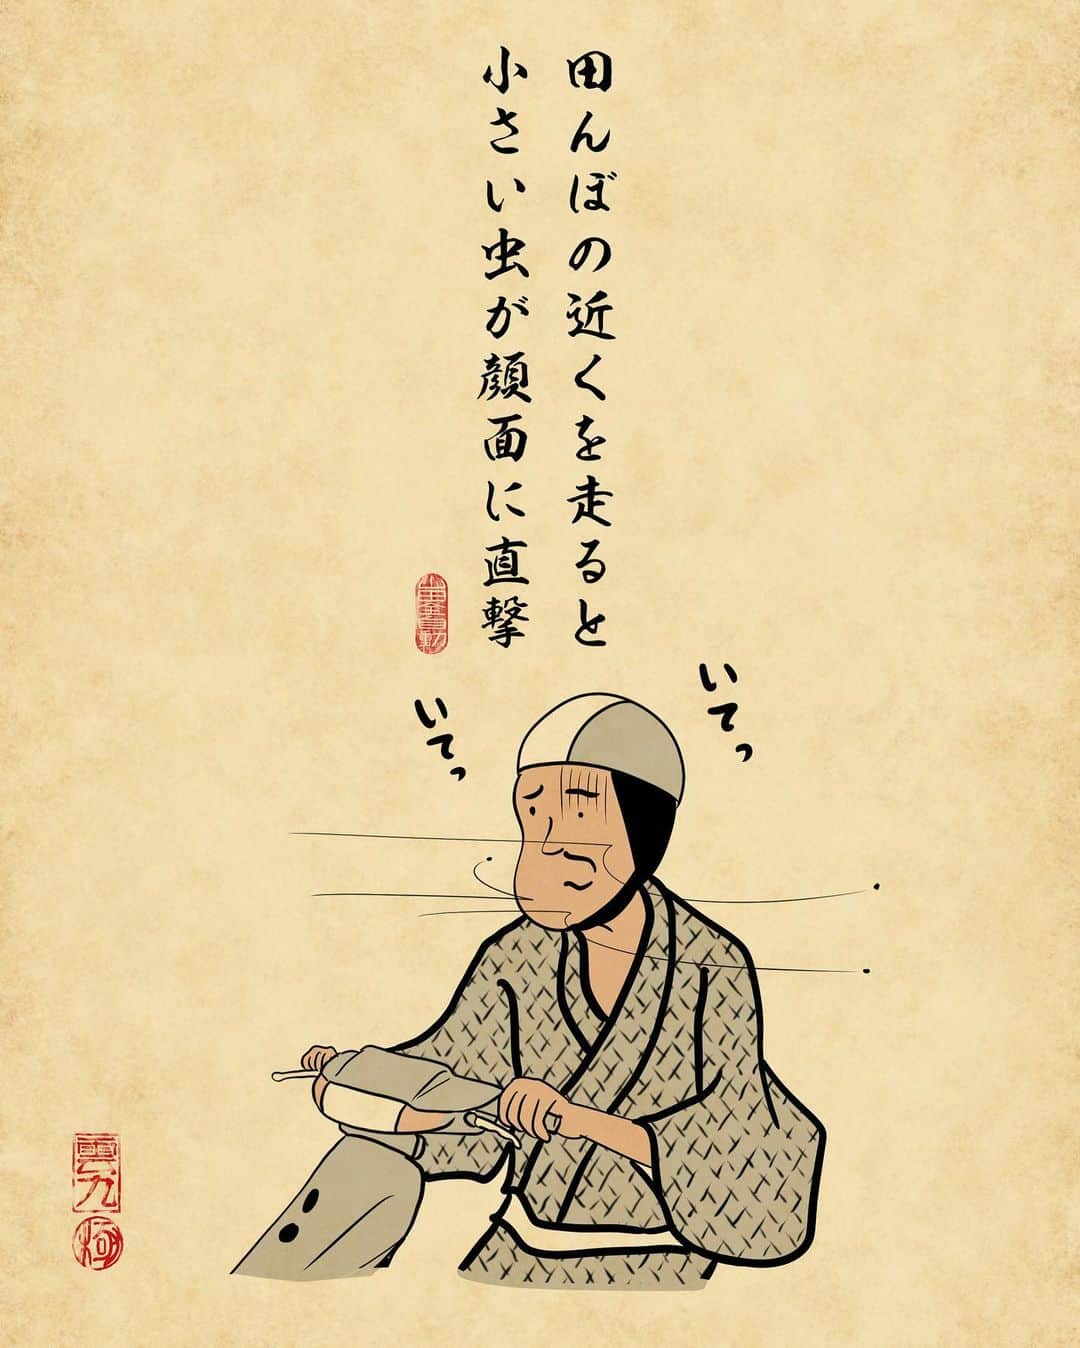 田んぼの近くを走ると
小さい虫が顔面に直撃
いてっ
いてっ